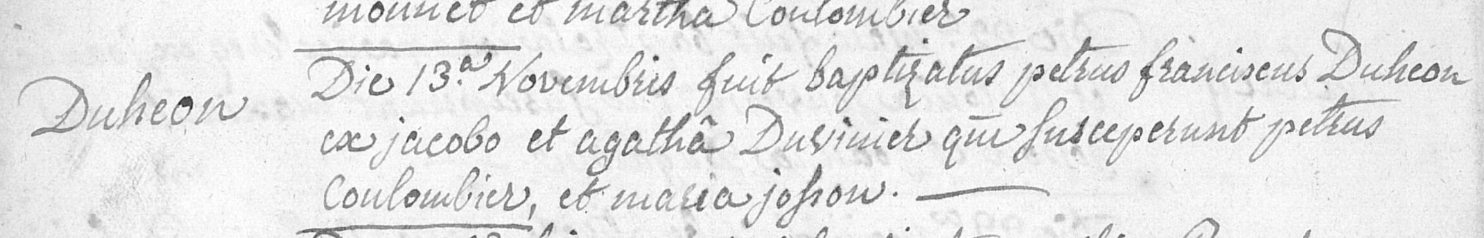 mounet et martha Coulombier
Die 13.a Novembris fuit baptizatus petrus franciscus Duheon
Duheon
ex jacobo et agathâ Duvinier quē susceperunt petrus
Coulombier, et maria josson.